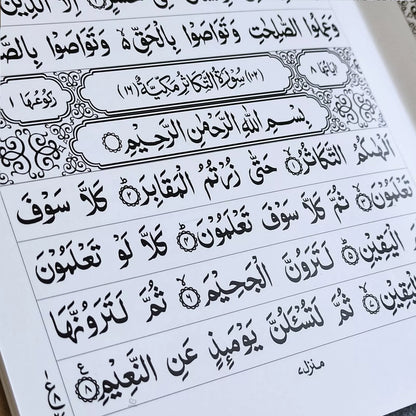 اِلَّا الَّذِيْنَ
وَعَمِلُوا الصّٰلِحٰتِ وَتَوَاصَوْا بِالْحَقِّ ۙ وَتَوَاصَوْا
اٰيَاتُهَا ٨ (١٠٢) سُوْرَةُ التَّكَاثُرِ مَكِّيَّةٌ (١٦) رُكُوْعُهَا ١
بِسْمِ اللّٰهِ الرَّحْمٰنِ الرَّحِيْمِ
اَلْهٰىكُمُ التَّكَاثُرُ ۙ﴿١﴾ حَتّٰى زُرْتُمُ الْمَقَابِرَ ؕ﴿٢﴾ كَلَّا سَوْفَ
تَعْلَمُوْنَ ۙ﴿٣﴾ ثُمَّ كَلَّا سَوْفَ تَعْلَمُوْنَ ؕ﴿٤﴾ كَلَّا لَوْ تَعْلَمُوْنَ
الْيَقِيْنِ ؕ﴿٥﴾ لَتَرَوُنَّ الْجَحِيْمَ ۙ﴿٦﴾ ثُمَّ لَتَرَوُنَّهَا
الْيَقِيْنِ ۙ﴿٧﴾ ثُمَّ لَتُسْـَٔلُنَّ يَوْمَىِٕذٍ عَنِ النَّعِيْمِ ﴿٨﴾
منزل٧